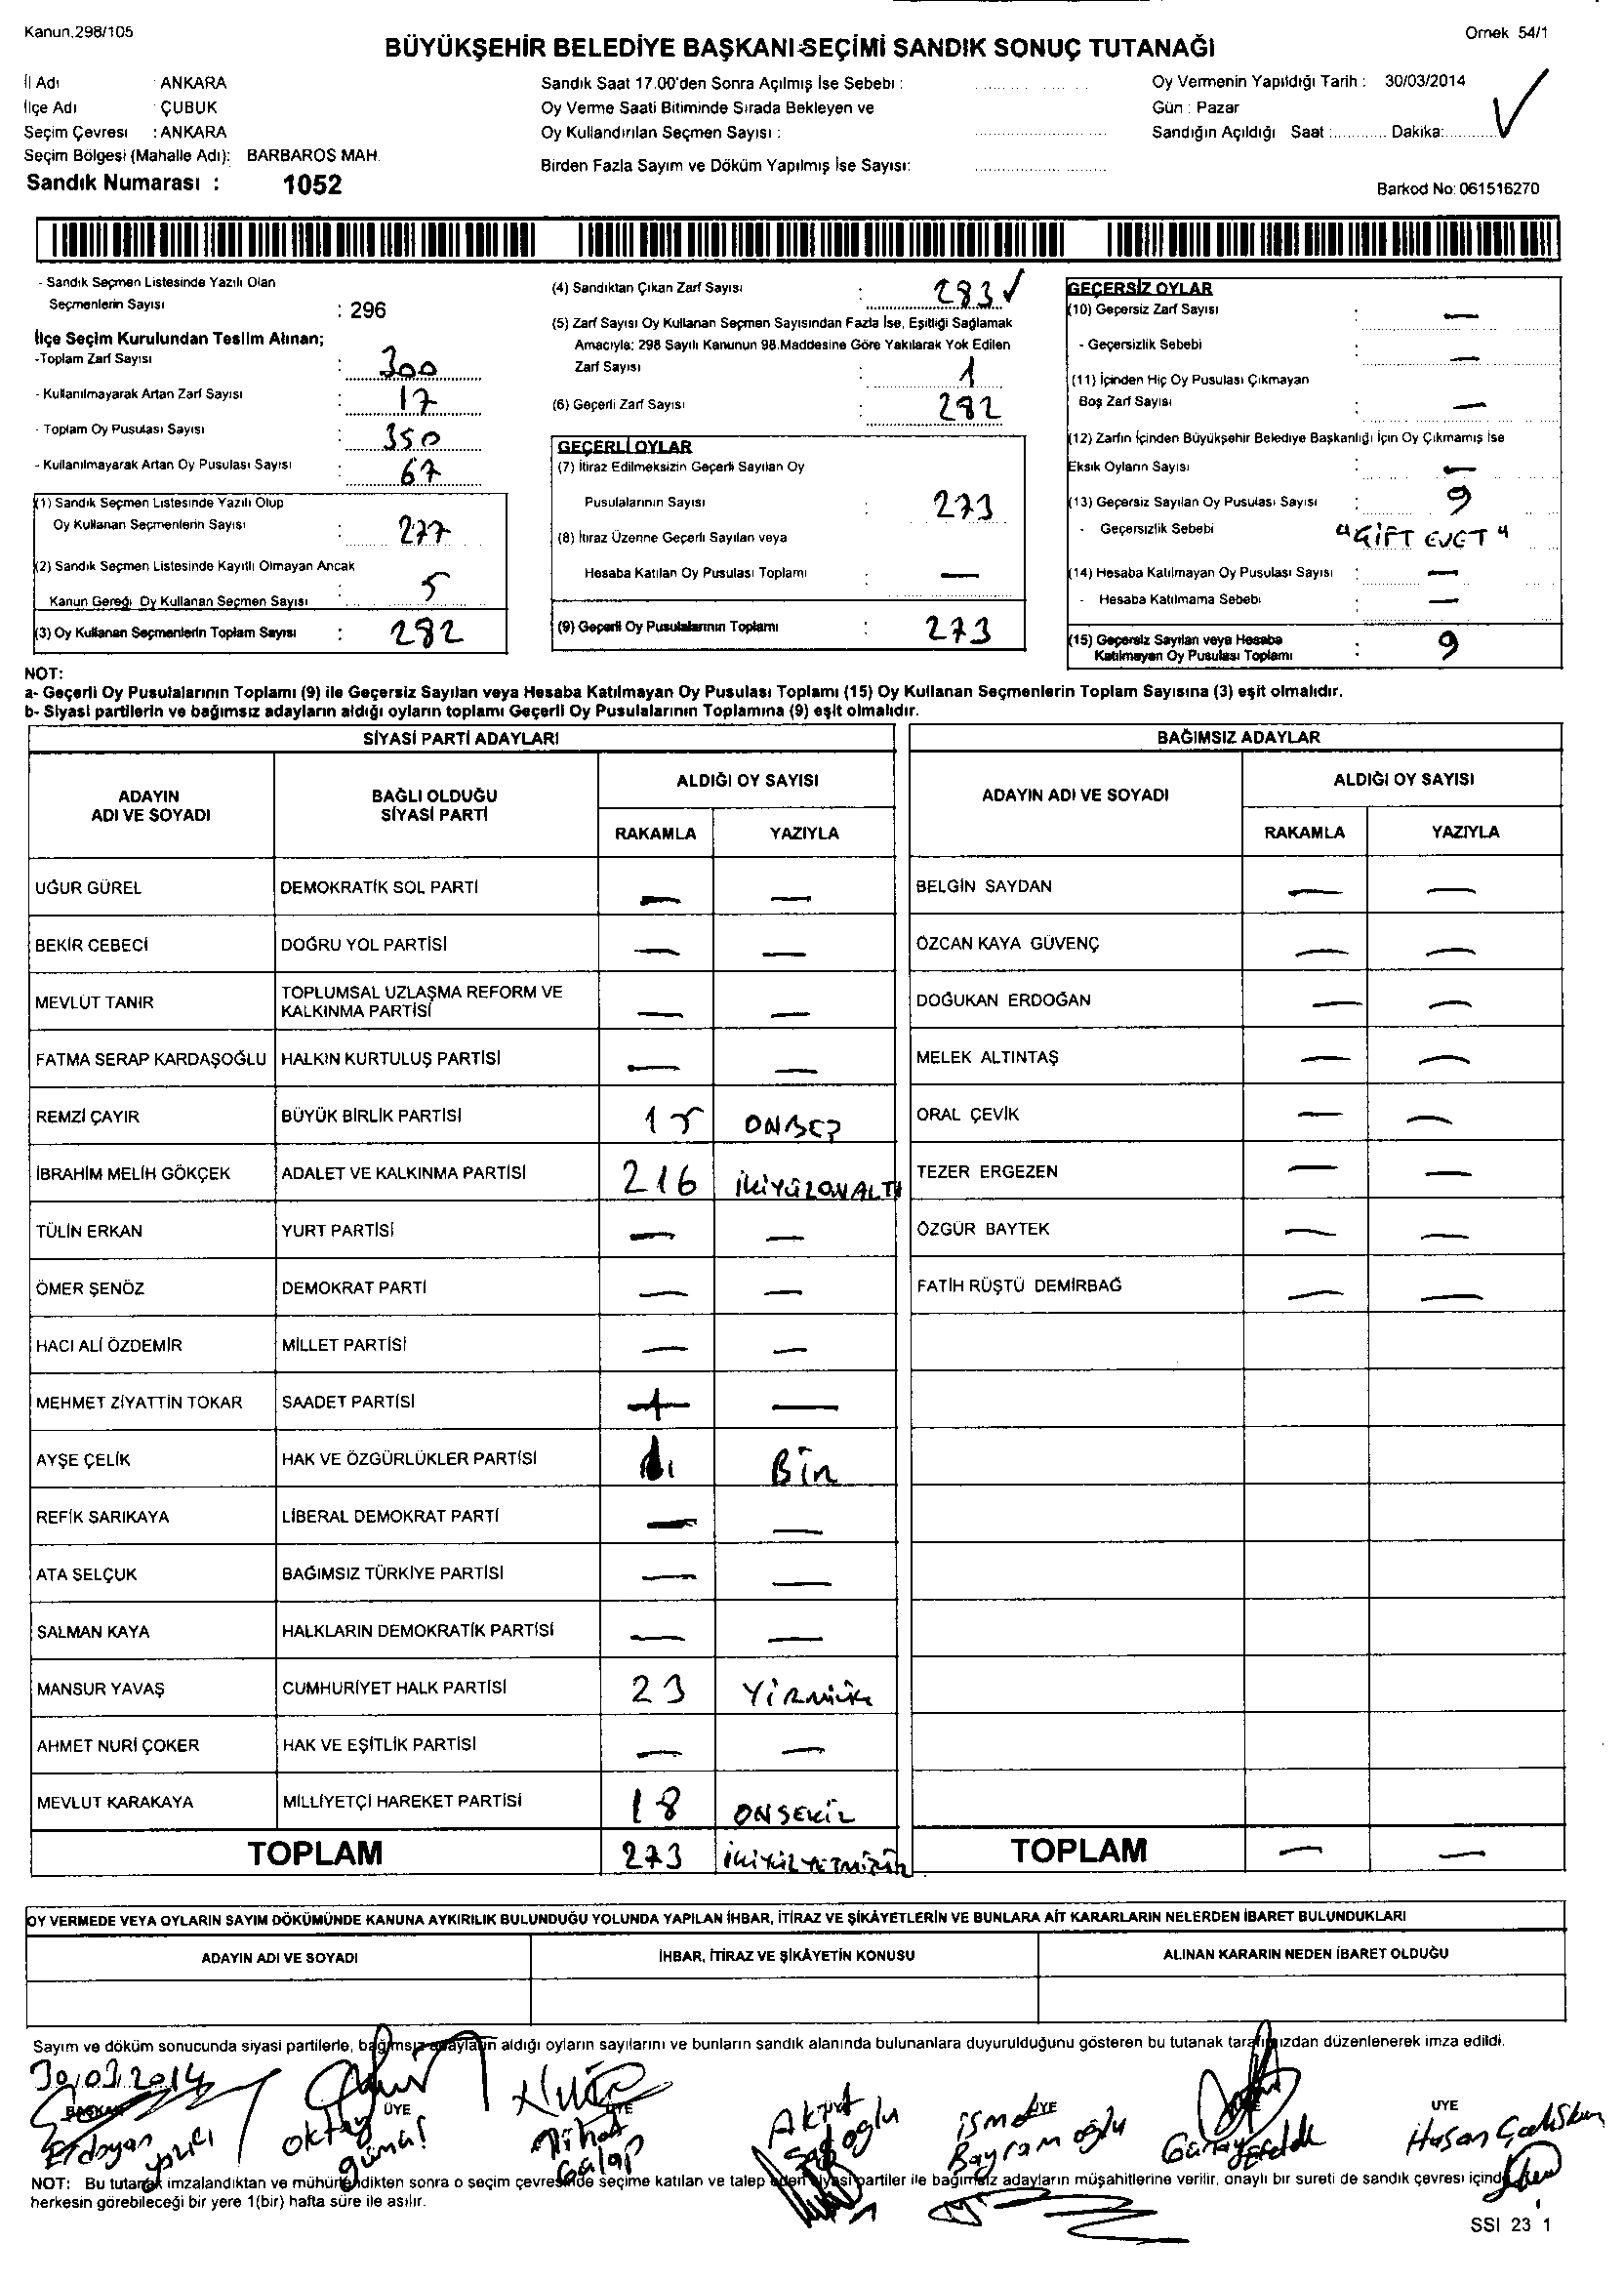 Kanun.298/105
Ornek 54/1
BÜYÜKŞEHİR BELEDİYE BAŞKANI SEÇİMİ SANDIK SONUÇ TUTANAĞI
İl Adı : ANKARA
İlçe Adı : ÇUBUK
Seçim Çevresi : ANKARA
Seçim Bölgesi (Mahalle Adı): BARBAROS MAH.
Sandık Numarası : 1052
Sandık Saat 17.00'den Sonra Açılmış İse Sebebi :
Oy Verme Saati Bitiminde Sırada Bekleyen ve
Oy Kullandırılan Seçmen Sayısı :
Birden Fazla Sayım ve Döküm Yapılmış İse Sayısı:
Oy Vermenin Yapıldığı Tarih : 30/03/2014
Gün : Pazar
Sandığın Açıldığı Saat :............ Dakika:............
Barkod No: 061516270
- Sandık Seçmen Listesinde Yazılı Olan
Seçmenlerin Sayısı : 296
İlçe Seçim Kurulundan Teslim Alınan;
-Toplam Zarf Sayısı : 300
- Kullanılmayarak Artan Zarf Sayısı : 17
- Toplam Oy Pusulası Sayısı : 350
- Kullanılmayarak Artan Oy Pusulası Sayısı : 67
(1) Sandık Seçmen Listesinde Yazılı Olup
Oy Kullanan Seçmenlerin Sayısı : 277
(2) Sandık Seçmen Listesinde Kayıtlı Olmayan Ancak
Kanun Gereği Oy Kullanan Seçmen Sayısı : 5
(3) Oy Kullanan Seçmenlerin Toplam Sayısı : 282
(4) Sandıktan Çıkan Zarf Sayısı : 283 ✓
(5) Zarf Sayısı Oy Kullanan Seçmen Sayısından Fazla İse, Eşitliği Sağlamak
Amacıyla: 298 Sayılı Kanunun 98.Maddesine Göre Yakılarak Yok Edilen
Zarf Sayısı : 1
(6) Geçerli Zarf Sayısı : 282
GEÇERLİ OYLAR
(7) İtiraz Edilmeksizin Geçerli Sayılan Oy
Pusulalarının Sayısı : 273
(8) İtiraz Üzerine Geçerli Sayılan veya
Hesaba Katılan Oy Pusulası Toplamı : —
(9) Geçerli Oy Pusulalarının Toplamı : 273
GEÇERSİZ OYLAR
(10) Geçersiz Zarf Sayısı : —
- Geçersizlik Sebebi : —
(11) İçinden Hiç Oy Pusulası Çıkmayan
Boş Zarf Sayısı : —
(12) Zarfın İçinden Büyükşehir Belediye Başkanlığı İçin Oy Çıkmamış İse
Eksik Oyların Sayısı : —
(13) Geçersiz Sayılan Oy Pusulası Sayısı : 9
- Geçersizlik Sebebi "ÇİFT EVET"
(14) Hesaba Katılmayan Oy Pusulası Sayısı : —
- Hesaba Katılmama Sebebi : —
(15) Geçersiz Sayılan veya Hesaba
Katılmayan Oy Pusulası Toplamı : 9
NOT:
a- Geçerli Oy Pusulalarının Toplamı (9) ile Geçersiz Sayılan veya Hesaba Katılmayan Oy Pusulası Toplamı (15) Oy Kullanan Seçmenlerin Toplam Sayısına (3) eşit olmalıdır.
b- Siyasi partilerin ve bağımsız adayların aldığı oyların toplamı Geçerli Oy Pusulalarının Toplamına (9) eşit olmalıdır.
SİYASİ PARTİ ADAYLARI
ADAYIN ADI VE SOYADI
BAĞLI OLDUĞU SİYASİ PARTİ
ALDIĞI OY SAYISI
RAKAMLA YAZIYLA
UĞUR GÜREL DEMOKRATİK SOL PARTİ — —
BEKİR CEBECİ DOĞRU YOL PARTİSİ — —
MEVLÜT TANIR TOPLUMSAL UZLAŞMA REFORM VE KALKINMA PARTİSİ — —
FATMA SERAP KARDAŞOĞLU HALKIN KURTULUŞ PARTİSİ — —
REMZİ ÇAYIR BÜYÜK BİRLİK PARTİSİ 15 ONBEŞ
İBRAHİM MELİH GÖKÇEK ADALET VE KALKINMA PARTİSİ 216 İKİYÜZONALTI
TÜLİN ERKAN YURT PARTİSİ — —
ÖMER ŞENÖZ DEMOKRAT PARTİ — —
HACI ALİ ÖZDEMİR MİLLET PARTİSİ — —
MEHMET ZİYATTİN TOKAR SAADET PARTİSİ — —
AYŞE ÇELİK HAK VE ÖZGÜRLÜKLER PARTİSİ 1 Bir
REFİK SARIKAYA LİBERAL DEMOKRAT PARTİ — —
ATA SELÇUK BAĞIMSIZ TÜRKİYE PARTİSİ — —
SALMAN KAYA HALKLARIN DEMOKRATİK PARTİSİ — —
MANSUR YAVAŞ CUMHURİYET HALK PARTİSİ 23
AHMET NURİ ÇOKER HAK VE EŞİTLİK PARTİSİ — —
MEVLUT KARAKAYA MİLLİYETÇİ HAREKET PARTİSİ 18 ONSEKİZ
TOPLAM 273
BAĞIMSIZ ADAYLAR
ADAYIN ADI VE SOYADI
ALDIĞI OY SAYISI
RAKAMLA YAZIYLA
BELGİN SAYDAN — —
ÖZCAN KAYA GÜVENÇ — —
DOĞUKAN ERDOĞAN — —
MELEK ALTINTAŞ — —
ORAL ÇEVİK — —
TEZER ERGEZEN — —
ÖZGÜR BAYTEK — —
FATİH RÜŞTÜ DEMİRBAĞ — —
TOPLAM — —
OY VERMEDE VEYA OYLARIN SAYIM DÖKÜMÜNDE KANUNA AYKIRILIK BULUNDUĞU YOLUNDA YAPILAN İHBAR, İTİRAZ VE ŞİKÂYETLERİN VE BUNLARA AİT KARARLARIN NELERDEN İBARET BULUNDUKLARI
ADAYIN ADI VE SOYADI İHBAR, İTİRAZ VE ŞİKÂYETİN KONUSU ALINAN KARARIN NEDEN İBARET OLDUĞU
Sayım ve döküm sonucunda siyasi partilerle, bağımsız adayların aldığı oyların sayılarını ve bunların sandık alanında bulunanlara duyurulduğunu gösteren bu tutanak tarafımızdan düzenlenerek imza edildi.
30/03/2014
BAŞKAN ÜYE ÜYE ÜYE ÜYE ÜYE
Erdoğan yazıcı
Oktay günal
Nihat
Akif Sağoğlu
İsmet Bayramoğlu
Hasan Çalışkan
NOT: Bu tutanak imzalandıktan ve mühürlendikten sonra o seçim çevresinde seçime katılan ve talep eden siyasi partiler ile bağımsız adayların müşahitlerine verilir, onaylı bir sureti de sandık çevresi içinde
herkesin görebileceği bir yere 1(bir) hafta süre ile asılır.
SSI 23 1